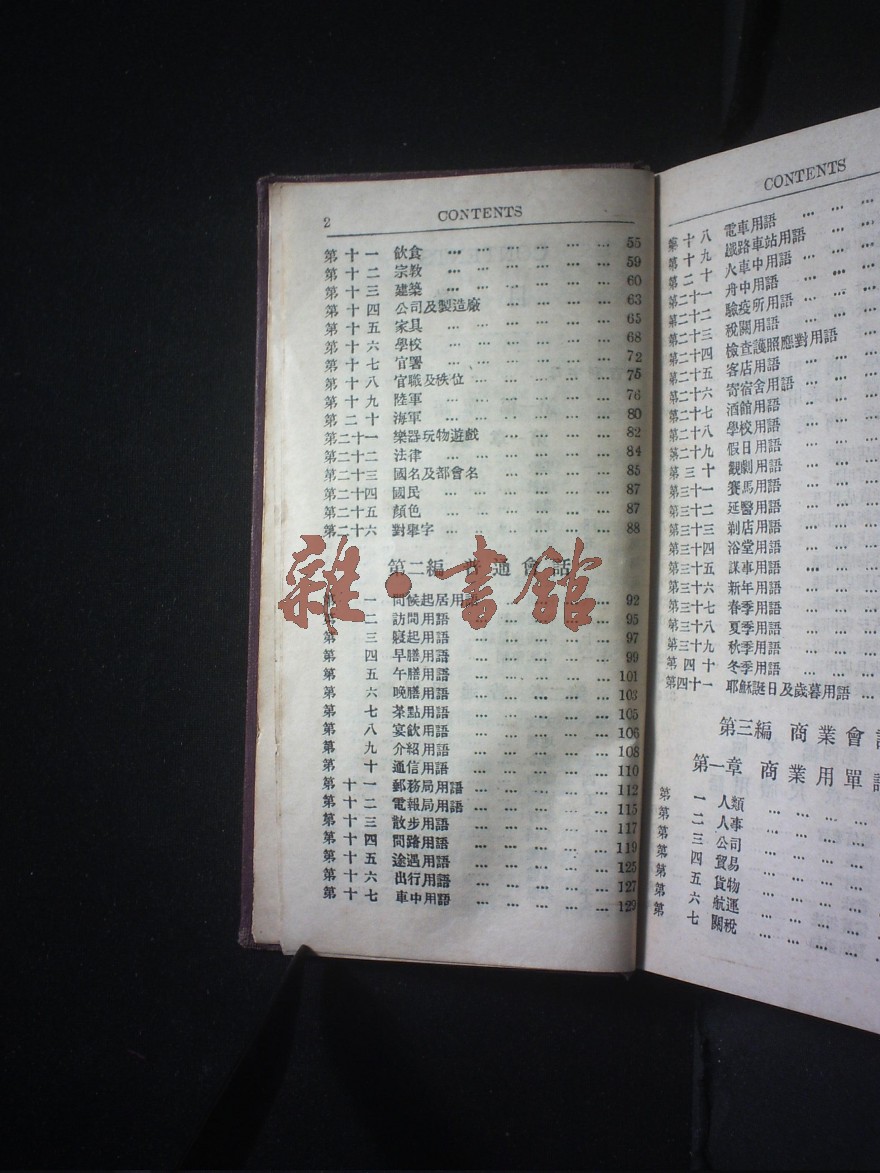 2 CONTENTS
第十一 飲食 … … … … … … 55
第十二 宗教 … … … … … … 59
第十三 建築 … … … … … … 60
第十四 公司及製造廠 … … … … … 63
第十五 家具 … … … … … … 65
第十六 學校 … … … … … … 68
第十七 官署 … … … … … … 72
第十八 官職及秩位 … … … … … 75
第十九 陸軍 … … … … … … 76
第二十 海軍 … … … … … … 80
第二十一 樂器玩物遊戲 … … … … … 82
第二十二 法律 … … … … … … 84
第二十三 國名及部會名 … … … … … 85
第二十四 國民 … … … … … … 87
第二十五 顏色 … … … … … … 87
第二十六 對舉字 … … … … … … 88
第二編 普通會話
第一 問候起居用語 … … … … 92
第二 訪問用語 … … … … … 95
第三 寢起用語 … … … … … 97
第四 早膳用語 … … … … … 99
第五 午膳用語 … … … … … 101
第六 晚膳用語 … … … … … 103
第七 茶點用語 … … … … … 105
第八 宴飲用語 … … … … … 106
第九 介紹用語 … … … … … 108
第十 通信用語 … … … … … 110
第十一 郵務局用語 … … … … … 112
第十二 電報局用語 … … … … … 115
第十三 散步用語 … … … … … 117
第十四 問路用語 … … … … … 119
第十五 途遇用語 … … … … … 125
第十六 出行用語 … … … … … 127
第十七 車中用語 … … … … … 129
雜·書館
CONTENTS
第十八 電車用語 … … …
第十九 鐵路車站用語 … …
第二十 火車中用語 … … …
第二十一 舟中用語 … … …
第二十二 驗疫所用語 … … …
第二十三 稅關用語 … … …
第二十四 檢查護照應對用語 …
第二十五 客店用語 … … …
第二十六 寄宿舍用語 … … …
第二十七 酒館用語 … … …
第二十八 學校用語 … … …
第二十九 假日用語 … … …
第三十 觀劇用語 … … …
第三十一 賽馬用語 … … …
第三十二 延醫用語 … … …
第三十三 剃店用語 … … …
第三十四 浴堂用語 … … …
第三十五 謀事用語 … … …
第三十六 新年用語 … … …
第三十七 春季用語 … … …
第三十八 夏季用語 … … …
第三十九 秋季用語 … … …
第四十 冬季用語 … … …
第四十一 耶穌誕日及歲暮用語 …
第三編 商業會
第一章 商業用單
第一 人類 … … … …
第二 人事 … … … …
第三 公司 … … … …
第四 貿易 … … … …
第五 貨物 … … … …
第六 航運 … … … …
第七 關稅 … … … …